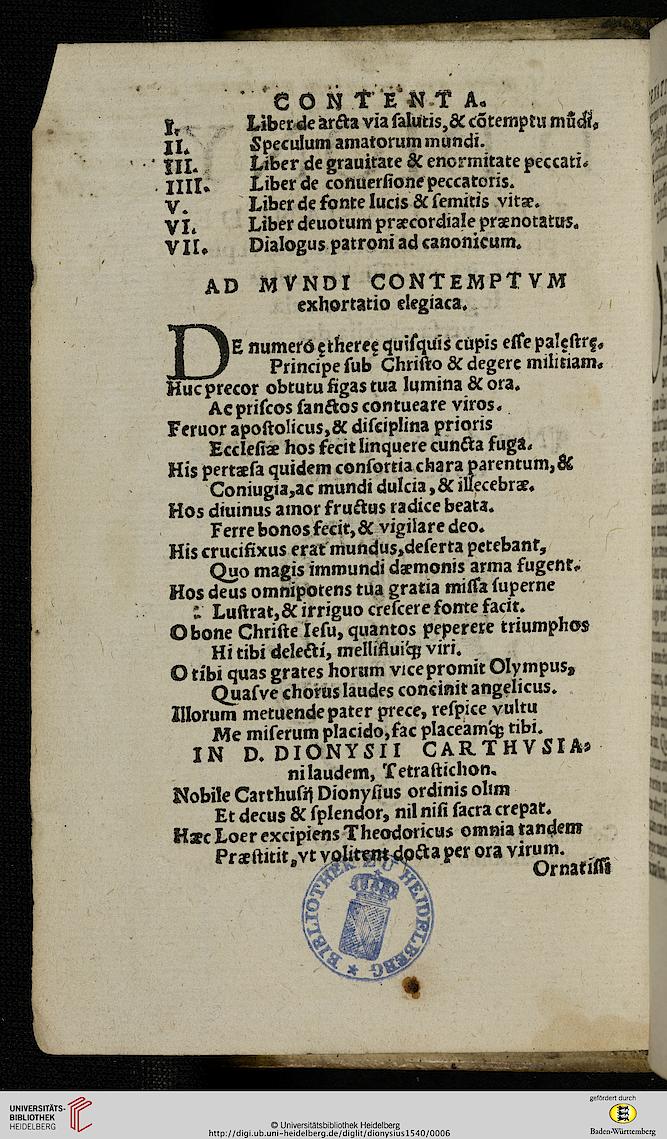 CONTENTA.
I. Liber de arcta via ſalutis, & cõtemptu mũdi.
II. Speculum amatorum mundi.
III. Liber de grauitate & enormitate peccati.
IIII. Liber de conuerſione peccatoris.
V. Liber de fonte lucis & ſemitis vitæ.
VI. Liber deuotum præcordiale prænotatus.
VII. Dialogus patroni ad canonicum.
AD MVNDI CONTEMPTVM
exhortatio elegiaca.
DE numero ęthereę quiſquis cupis eſſe palęſtrę.
Principe ſub Chriſto & degere militiam.
Huc precor obtutu figas tua lumina & ora.
Ac priſcos ſanctos contueare viros.
Feruor apoſtolicus, & diſciplina prioris
Eccleſiæ hos fecit linquere cuncta fuga.
His pertæſa quidem conſortia chara parentum, &
Coniugia, ac mundi dulcia, & illecebræ.
Hos diuinus amor fructus radice beata.
Ferre bonos fecit, & vigilare deo.
His crucifixus erat mundus, deſerta petebant,
Quo magis immundi dæmonis arma fugent.
Hos deus omnipotens tua gratia miſſa ſuperne
Luſtrat, & irriguo creſcere fonte facit.
O bone Chriſte Ieſu, quantos peperere triumphos
Hi tibi delecti, mellifluiq́; viri.
O tibi quas grates horum vice promit Olympus,
Quaſve chorus laudes concinit angelicus.
Illorum metuende pater prece, reſpice vultu
Me miſerum placido, fac placeamq́; tibi.
IN D. DIONYSII CARTHVSIA-
ni laudem, Tetraſtichon.
Nobile Carthuſij Dionyſius ordinis olim
Et decus & ſplendor, nil niſi ſacra crepat.
Hæc Loer excipiens Theodoricus omnia tandem
Præſtitit, vt volitent docta per ora virum.
Ornatiſſi
BIBLIOTHEK ZU HEIDELBERG
UNIVERSITÄTS-
BIBLIOTHEK
HEIDELBERG
© Universitätsbibliothek Heidelberg
http://digi.ub.uni-heidelberg.de/diglit/dionysius1540/0006
gefördert durch
Baden-Württemberg